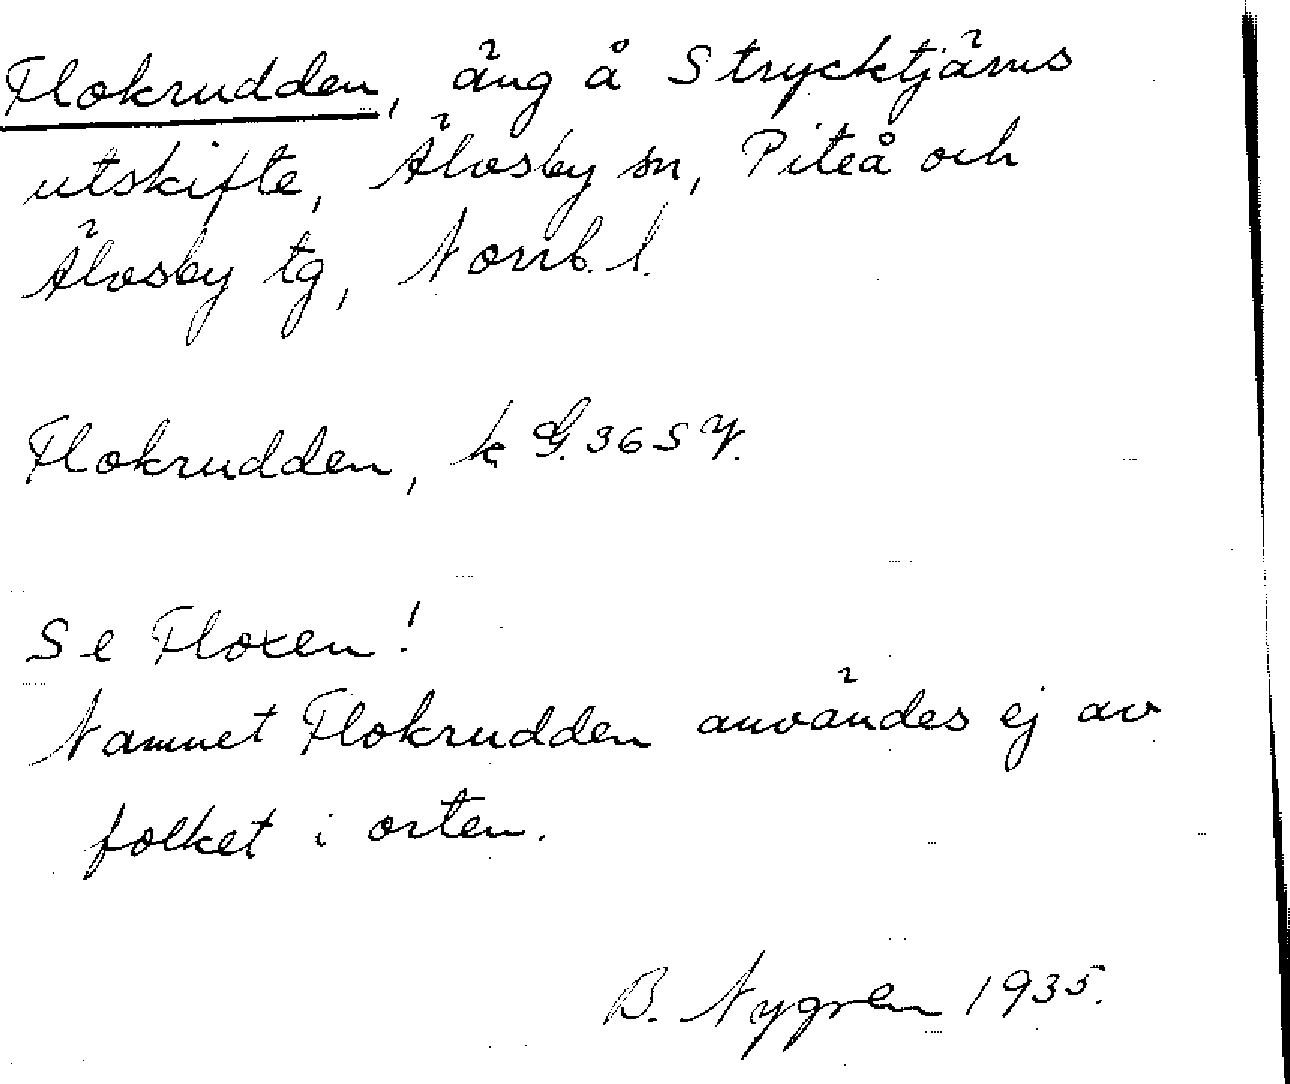 Flokrudden, äng å Strycktjärns
utskifte, Älvsby sn, Piteå och
Älvsby tg, Norrb. l.
Flokrudden, k G. 36 5 Y.
Se Floxen!
Namnet Flokrudden användes ej av
folket i orten.
B. Nygren 1935.